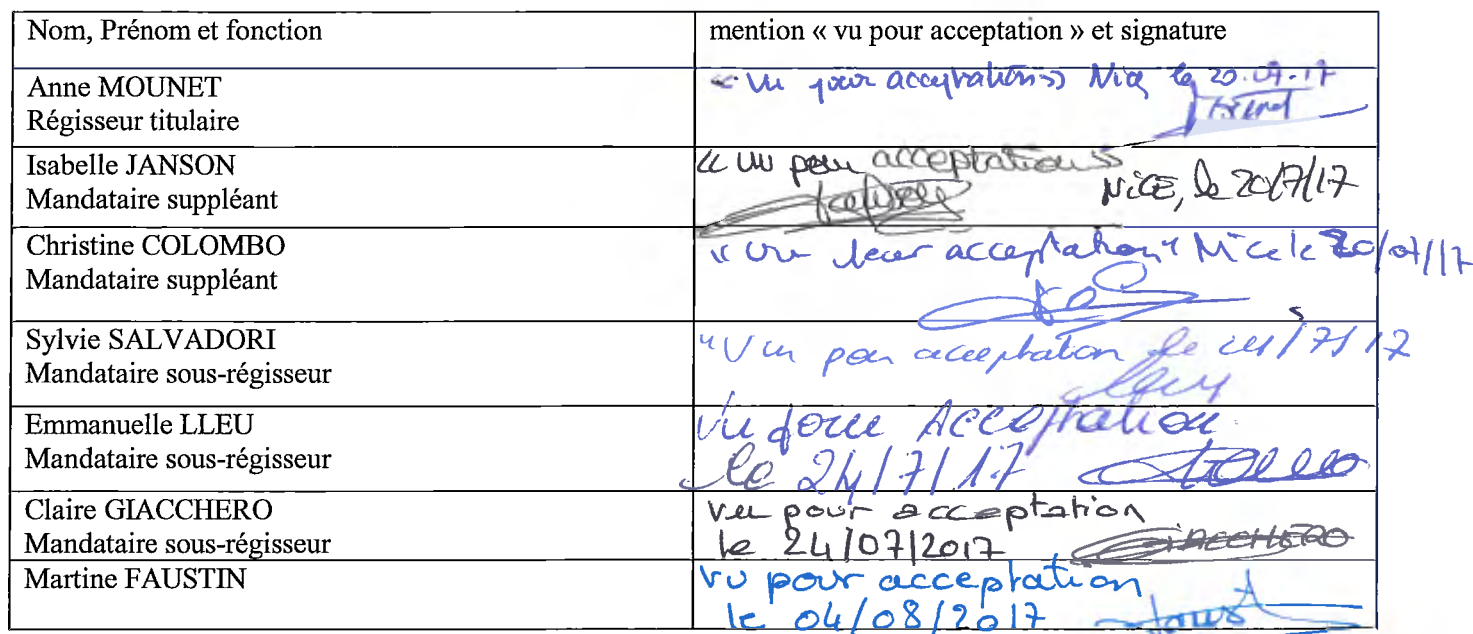 Nom, Prénom et fonction
mention « vu pour acceptation » et signature
Anne MOUNET
Régisseur titulaire
« Vu pour acceptation » Nice le 20.07.17
Isabelle JANSON
Mandataire suppléant
« vu pour acceptation »
NiCE, le 20/7/17
Christine COLOMBO
Mandataire suppléant
« Vu pour acceptation " Nice le 20/07/17
Sylvie SALVADORI
Mandataire sous-régisseur
"Vu pour acceptation le /7/17
Emmanuelle LLEU
Mandataire sous-régisseur
Vu pour Acceptation
le 24/7/17
Claire GIACCHERO
Mandataire sous-régisseur
vu pour acceptation
le 24/07/2017 GIACCHERO
Martine FAUSTIN
vu pour acceptation
le 04/08/2017